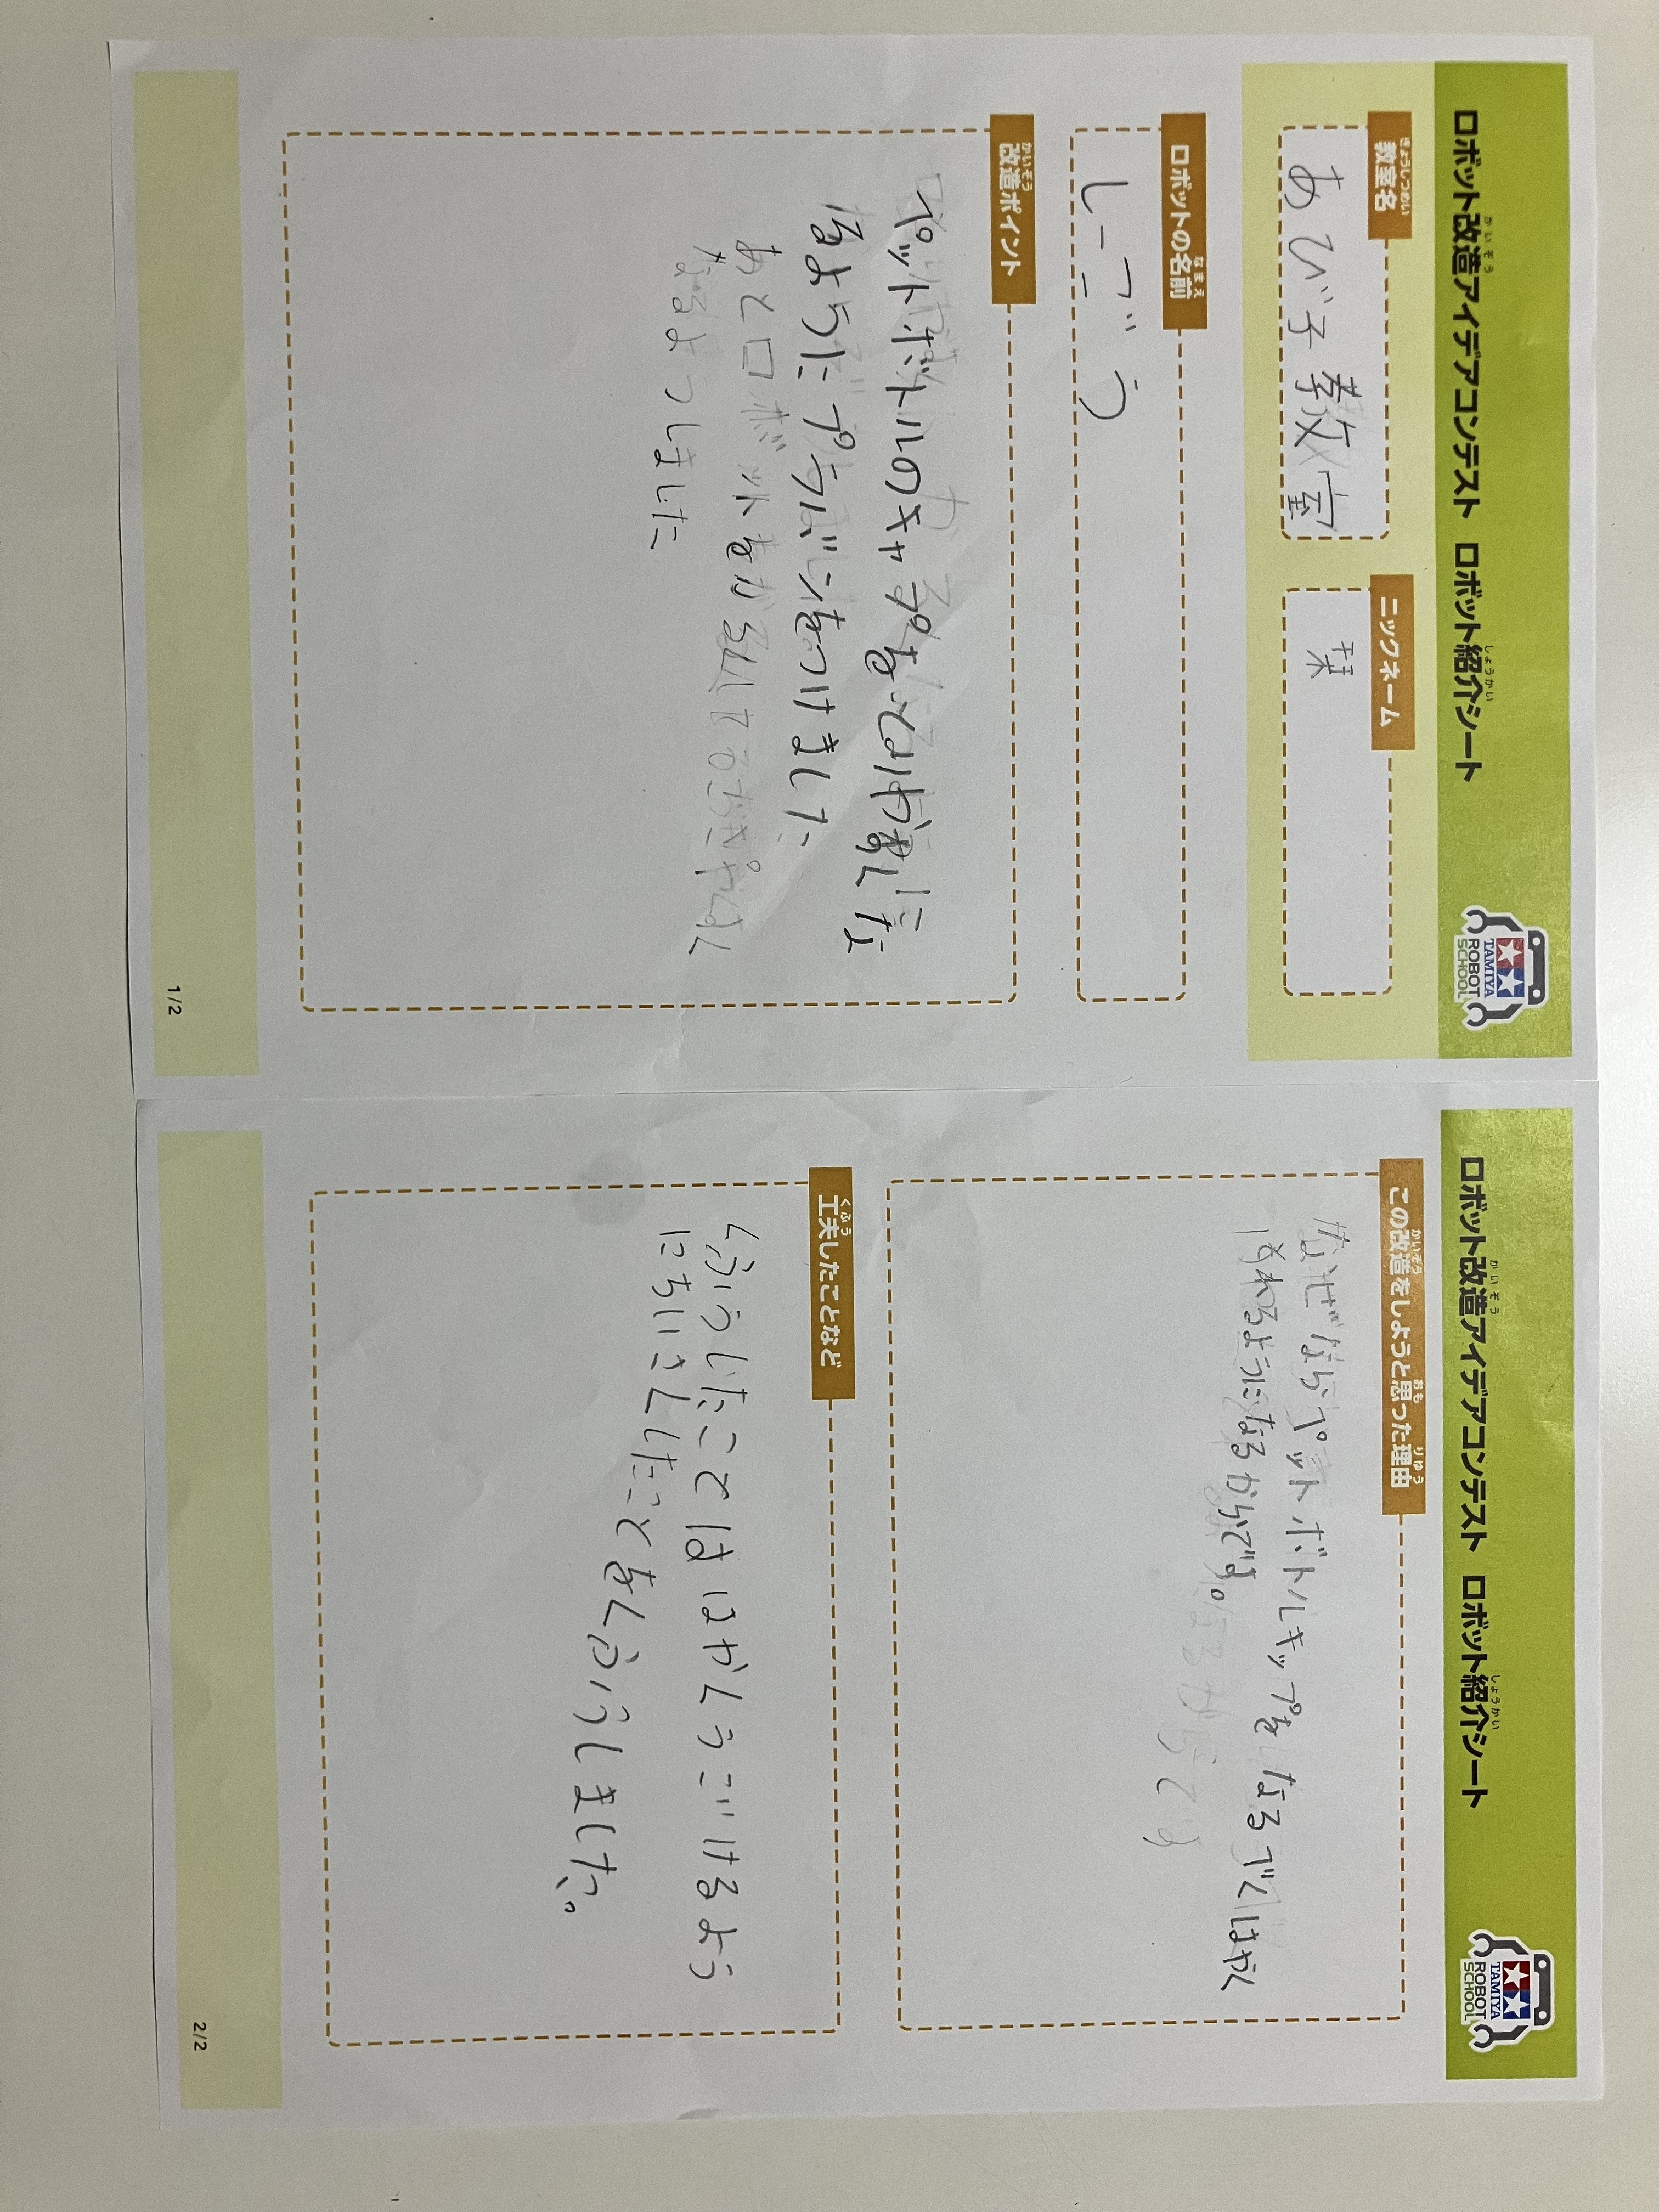 ロボット改造アイデアコンテスト ロボット紹介シート
かいぞう
しょうかい
TAMIYA
ROBOT
SCHOOL
きょうしつめい
教室名
あびこ教室
ニックネーム
栞
なまえ
ロボットの名前
しーごう
かいぞう
改造ポイント
ペットボトルのキャプを
るようにプラバンをつけました
あとロボットを
なるよつしました
1/2
ロボット改造アイデアコンテスト ロボット紹介シート
かいぞう
しょうかい
TAMIYA
ROBOT
SCHOOL
かいぞう
おも
りゆう
この改造をしようと思った理由
なぜならペットボトルキップを なるでくはやく
はめれるようになるからです。
くふう
工夫したことなど
くふうしたことははやくうごけるよう
にちいさくしたことをくふうしました。
2/2